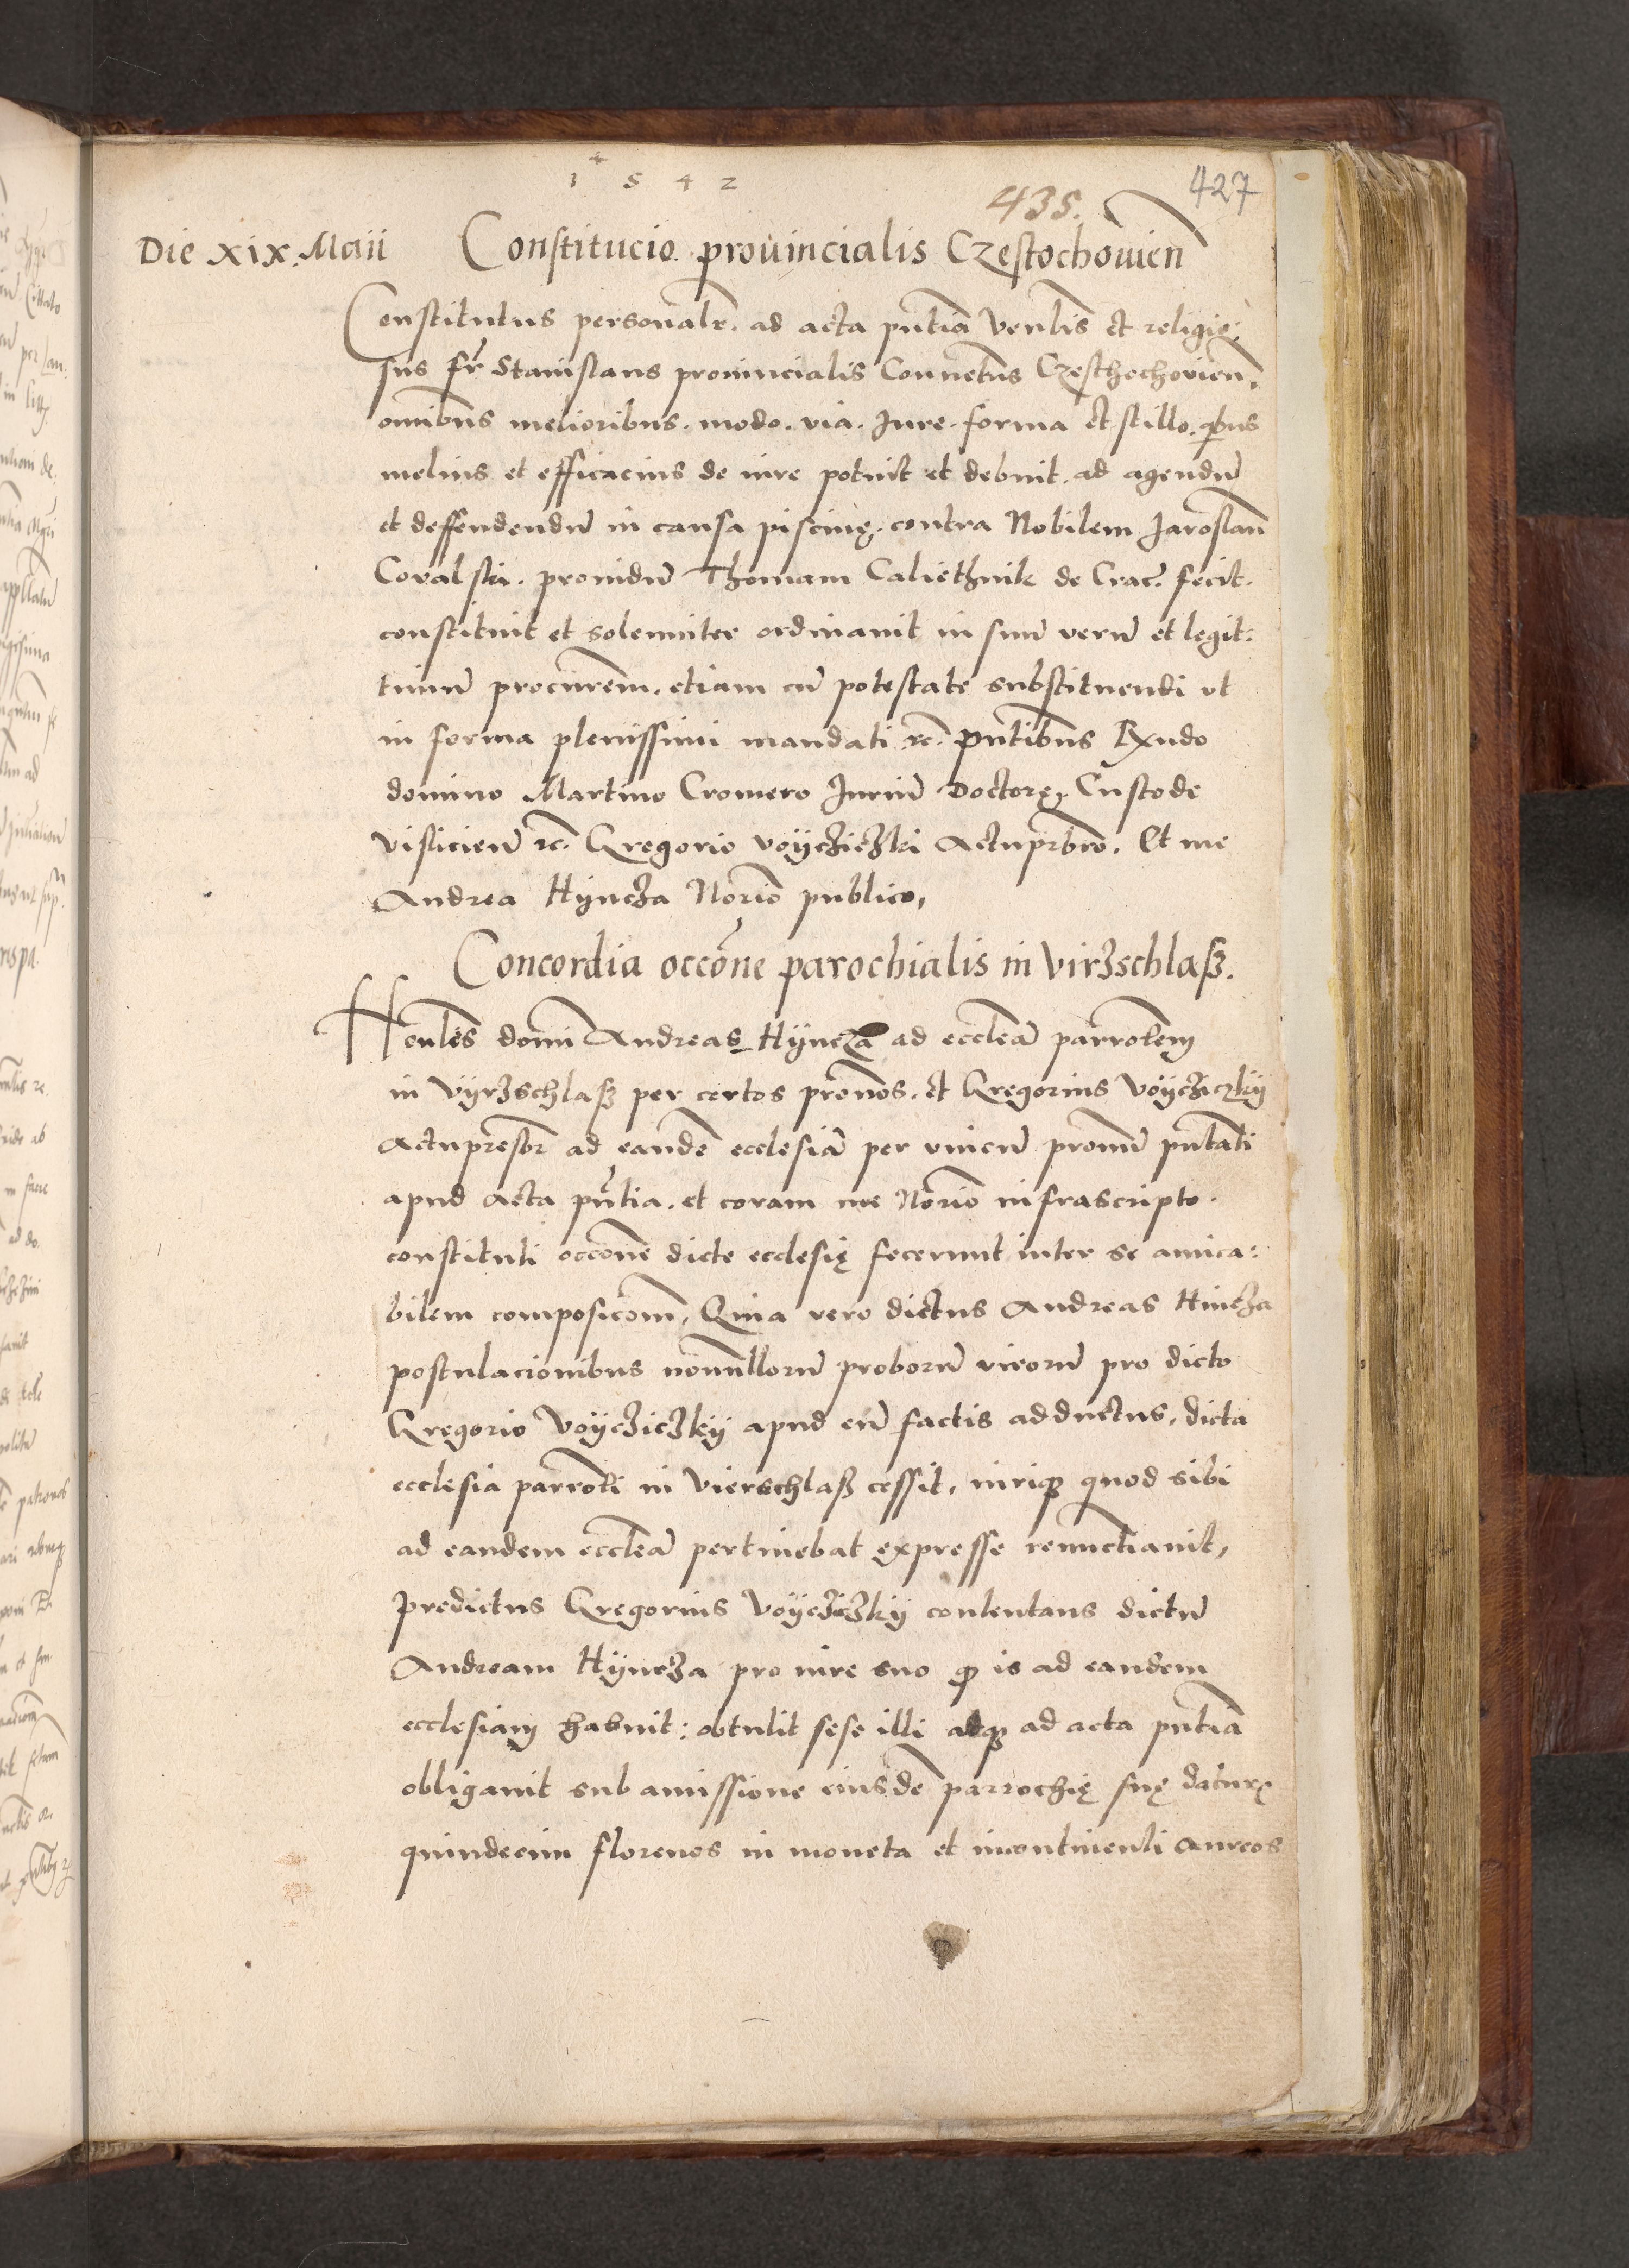 1 5 4 2
427
435.
Die XIX. Maii Constitucio provincialis Czestochouien̄
Constitutus personalr̄. ad acta pn̄tia Venlis̄ et religio:
sus fr̄ Stanislaus prouincialis Conuetus̄ Czesthochouien̄,
omibus̄ melioribus. modo. via. Jure. forma et stillo. qbus
melius et efficacius de iure potuit et debuit. ad agendū
et deffendendū in causa piscinę. contra Nobilem Jaroslaū
Covalski. prouidū Thomam Caliethnik de Crac̄. fecit.
constituit et solemniter ordinauit in suū verū et legit:
timū procurem̄. etiam cū potestate substituendi vt
in forma plenissimi mandati &c. pn̄tibus Rxndo
domino Martino Cromero Juriū Doctore, Custode
Visliciēn &c. Gregorio Voyczieczki Actuprbro. Et me
Andrea Hyncza Norio publico,
Concordia occōne parochialis in Virzschlaß.
Henles domi Andreas Hyncza ad eccleā parrolem
in Vyrzschlaß per certos pronos. et Gregorius Voycziczky
Actupresbr ad eandē ecclesiā per vnicū pronū pn̄tati
apud acta pn̄tia. et coram me Norio infrascripto.
constituti occōne dicte ecclesię fecerunt inter se amica:
bilem composicom̄, Quia vero dictus Andreas Hincza
postulacionibus nonnullorū proborū virorū pro dicto
Gregorio Voycziczky apud eū factis adductus, dicta
ecclesia parroti in Vierschlaß cessit, iuriq quod sibi
ad eandem eccleā pertinebat expresse renunctiauit,
predictus Gregorius Voycziczky contentans dictū
Andream Hyncza pro iure suo q is ad eandem
ecclesiam habuit: obtulit sese illi adq ad acta pn̄tia
obligauit sub amissione eiusdē parrochię suę daturę
quindecim florenos in moneta et incontinenti aureos